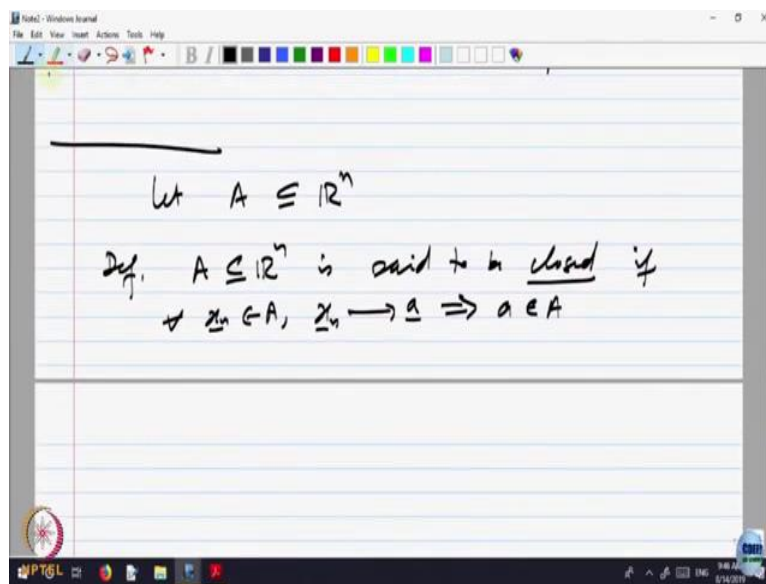 Note2 - Windows Journal
File Edit View Insert Actions Tools Help
B I
let A ⊆ ℝⁿ
Def. A ⊆ ℝⁿ is said to be closed if
∀ x̲ₙ ∈ A, x̲ₙ → a̲ ⇒ a ∈ A
NPTEL
ENG
8/14/2019